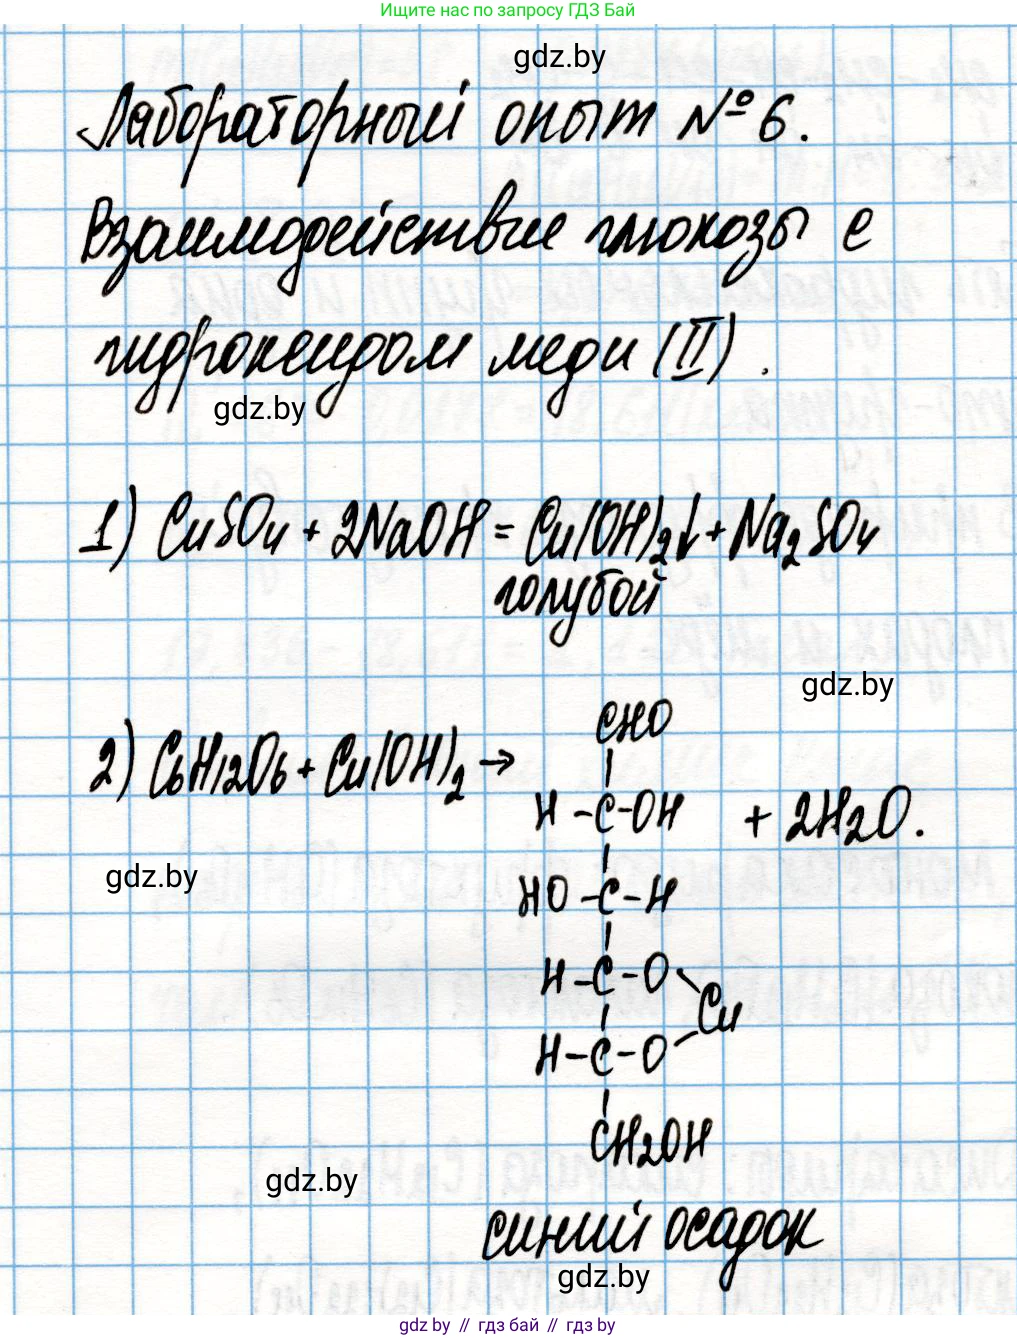 Ищите нас по запросу ГДЗ Бай
gdz.by
Лабораторный опыт №6.
Взаимодействие глюкозы с
гидроксидом меди (II).
gdz.by
1) CuSO4 + 2NaOH = Cu(OH)2↓ + Na2SO4
голубой
gdz.by
CHO
2) C6H12O6 + Cu(OH)2 →
H - C - OH + 2H2O.
gdz.by
HO - C - H
H - C - O
Cu
H - C - O
CH2OH
gdz.by
синий осадок
gdz.by
gdz.by // гдз бай // gdz.by